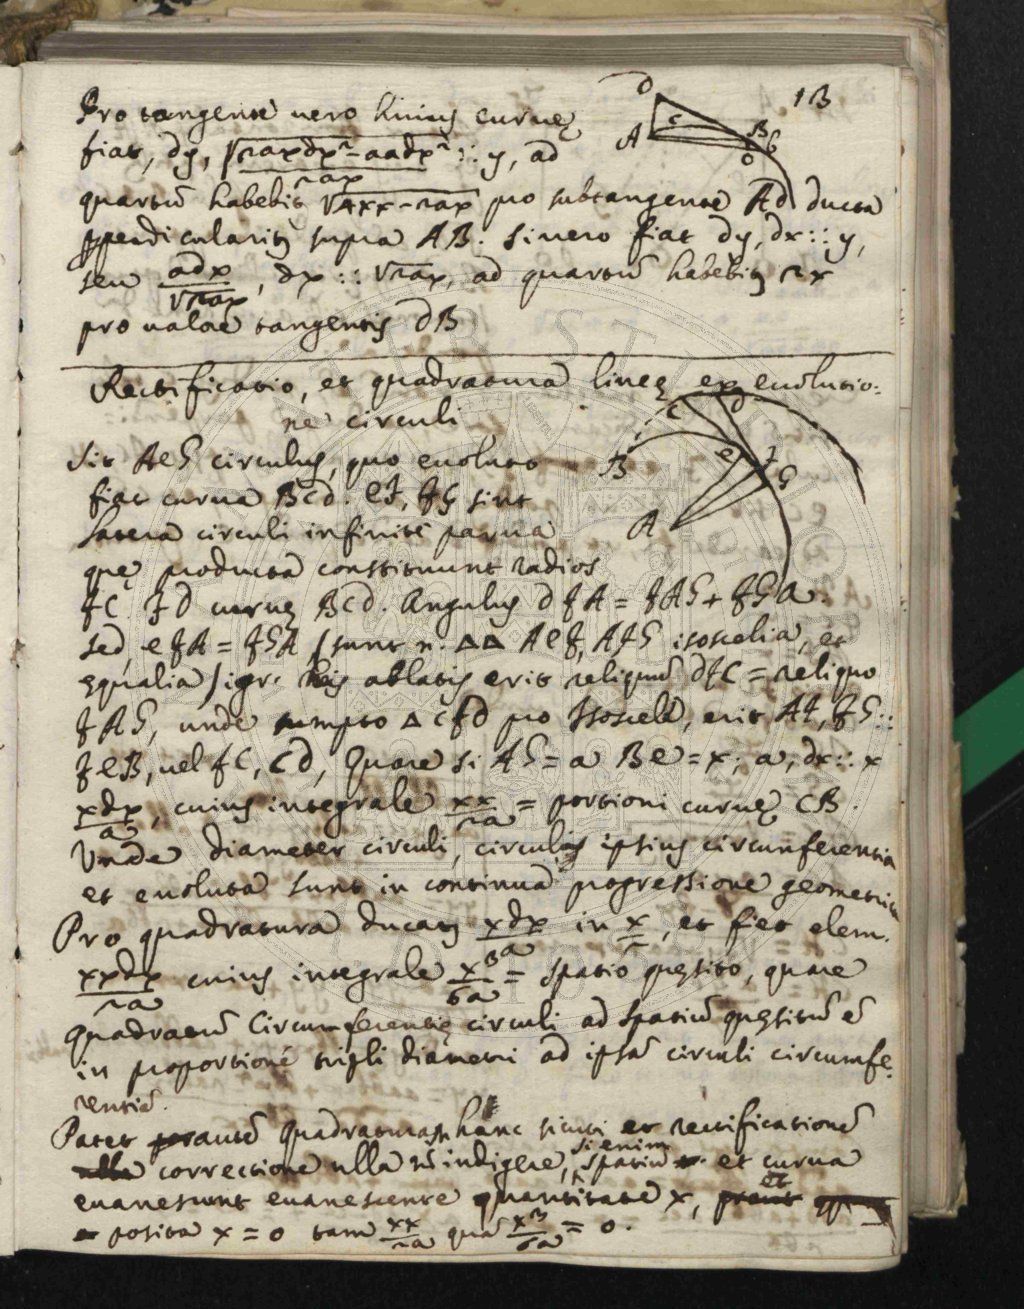 13
Pro tangente vero huius curvę
fiat, dy, √2axdx²-aadx² :: y, ad
2ax
quartū habebit √4xx-2ax pro subtangente Ad ducta
ppendicularit supra AB. Si vero fiat dy, dx :: y,
seu adx/√2ax, dx :: √2ax, ad quartū habebit 2x
pro valore tangentis dB
Rectificatio, et quadratura lineę ex evolutio-
ne circuli
Sit AeG circulus, quo evoluto
fiat curva BCd. ef, fG sint
latera circuli infinite parva
quę producta constituunt radios
fC. fd curvę BCd. Angulus dfA = fAG + fGA.
sed, efA = fGA / sunt n. ΔΔ Aef, AfG isoscelia, et
equalia / igr. his ablatis erit reliquus dfC = reliquo
fAG, unde sumpto Δ Cfd pro Isoscele, erit Af, fG ::
feB, vel fC, Cd, Quare si AG = a Be = x; a, dx :: x
xdx/a, cuius integrale xx/2a = portioni curvę CB.
Unde diameter circuli, circuli ipsius circunferentia
et evoluta sunt in continua progressione geometrica
Pro quadratura ducatj xdx/a in x/2, et fiet elem.
xxdx/2a cuius integrale x³/6a = spatio quęsito, quare
quadratū Circumferentię circuli ad spatiū quęsitū ē
in proportione tripli diametri ad ipsā circuli circumfe-
rentiā.
Patet autē quadraturā hanc sicuti et rectificationē
correctione ulla nō indigere, si enim spatiū et curva
evanescunt evanescente quantitate x, et
posita x = 0 tam xx/2a quā x³/6a = 0.
D
A
c
B
b
o
d
C
d
B
e
f
G
A